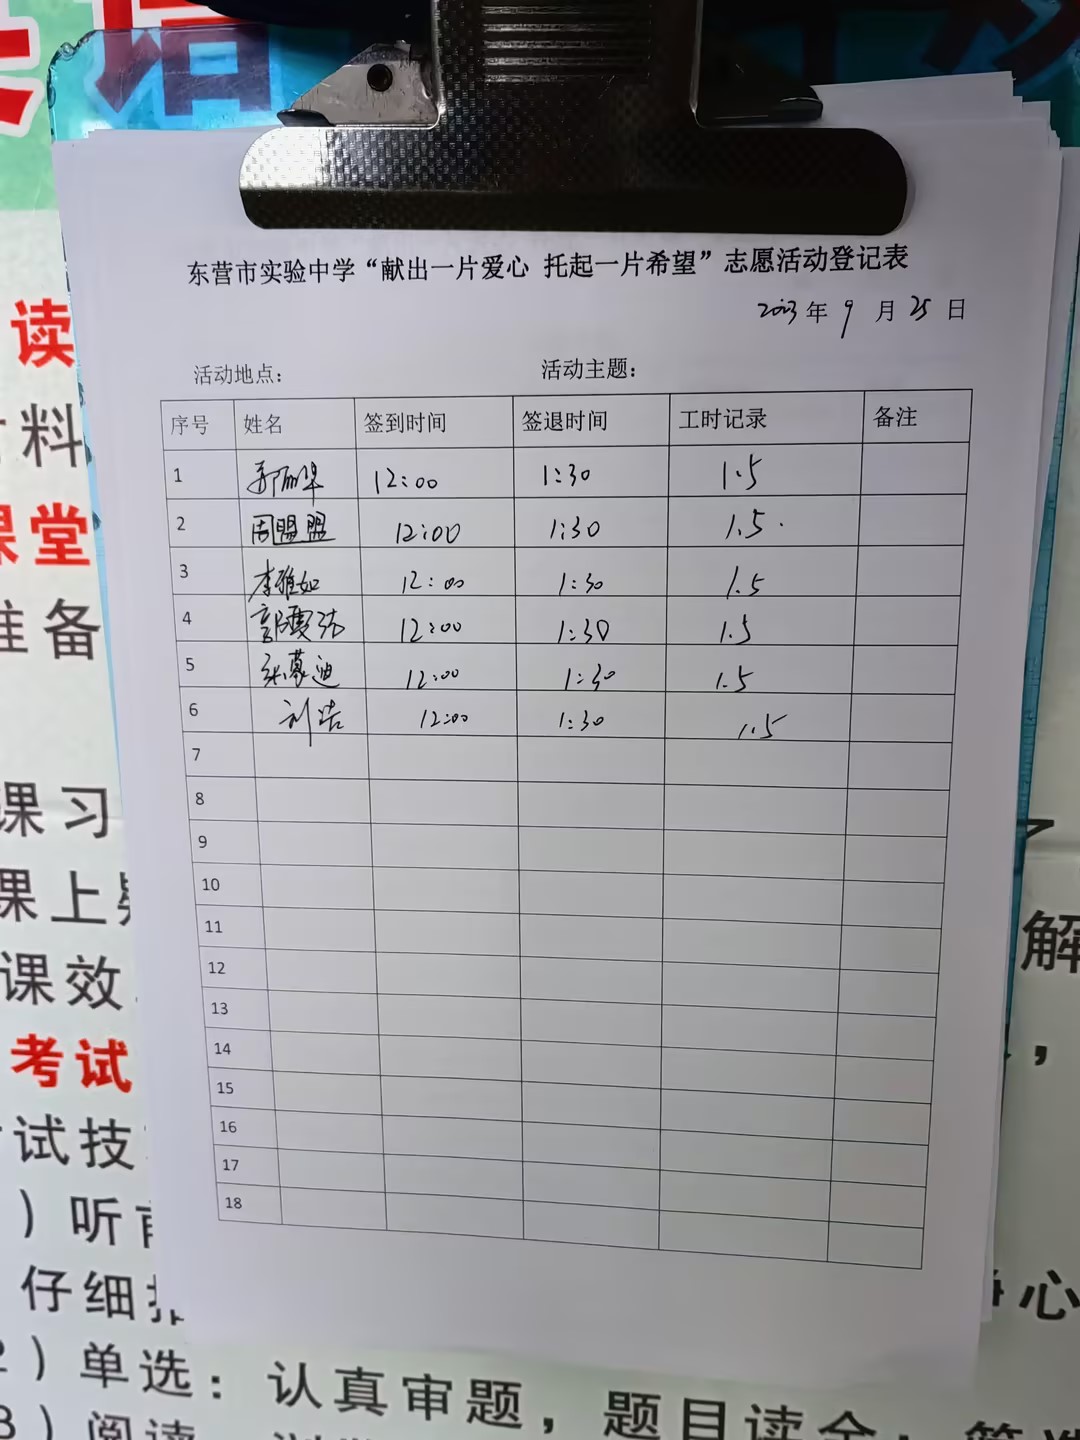 语
读
材料
课堂
准备
东营市实验中学“献出一片爱心 托起一片希望”志愿活动登记表
2023年 9 月 25 日
活动地点： 活动主题：
序号 姓名 签到时间 签退时间 工时记录 备注
1 12:00 1:30 1.5
2 周盟盟 12:00 1:30 1.5
3 李雅如 12:00 1:30 1.5
4 12:00 1:30 1.5
5 张蒙迪 12:00 1:30 1.5
6 刘洁 12:00 1:30 1.5
7
8
9
10
11
12
13
14
15
16
17
18
课习
课上
解
课效
考试
试技
）听
仔细 心
2）单选：认真审题，题目读全
3）阅读